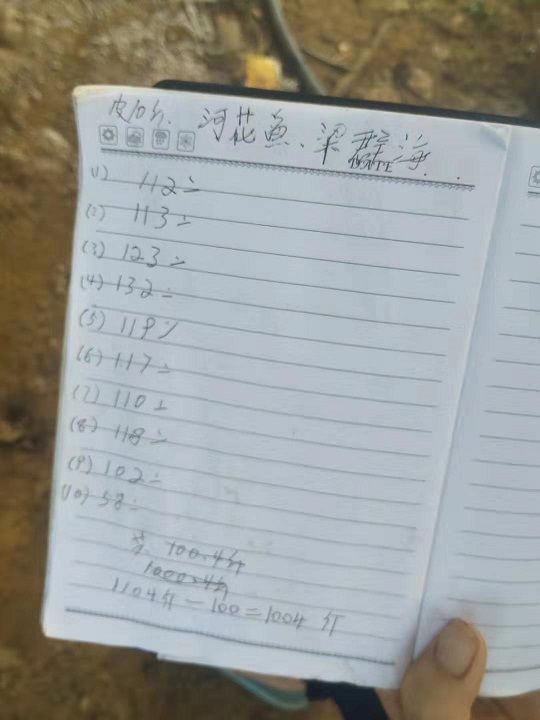 皮10斤. 河花鱼、梁群海.
(1) 112=
(2) 113=
(3) 123=
(4) 132=
(5) 119=
(6) 117=
(7) 110=
(8) 118=
(9) 102=
(10) 58=
100.4斤
1000.4斤
1104斤-100=1004斤